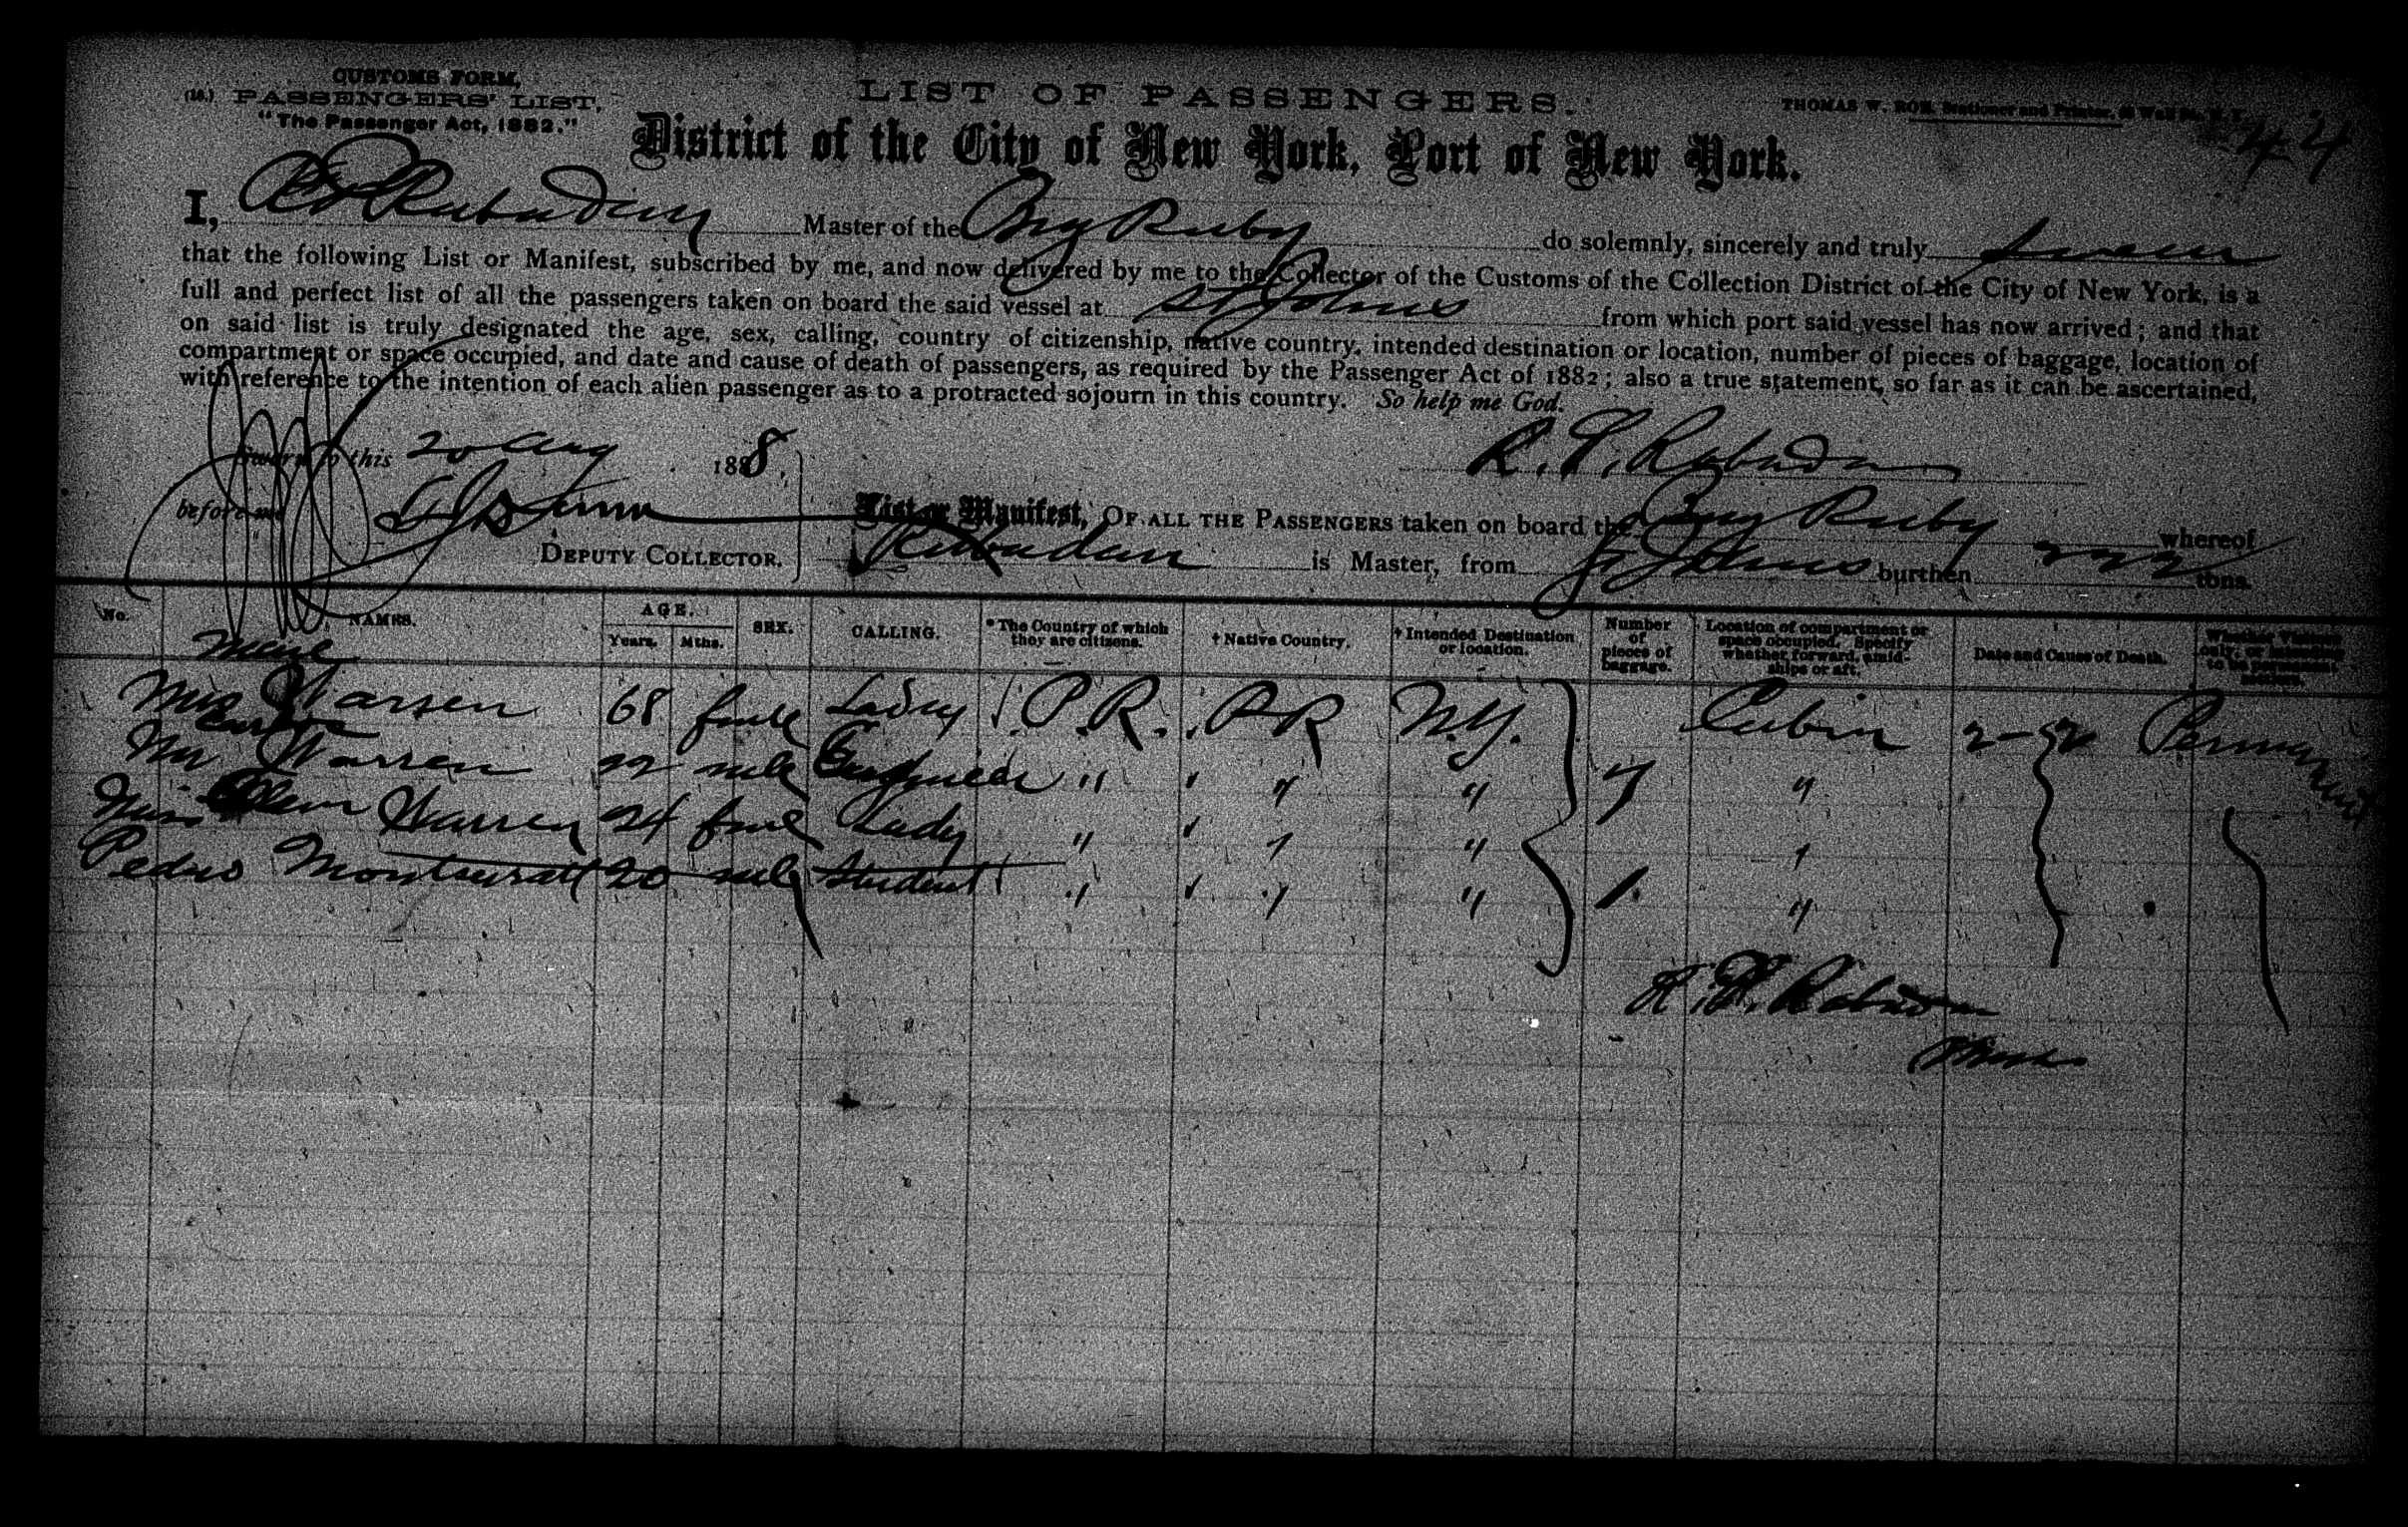 CUSTOMS FORM.
(18.) PASSENGERS' LIST,
"The Passenger Act, 1882."
LIST OF PASSENGERS.
THOMAS W. ROE, Stationer and Printer, Wall St., N. Y.
44
District of the City of New York, Port of New York.
I, Master of the Brig Ruby do solemnly, sincerely and truly swear
that the following List or Manifest, subscribed by me, and now delivered by me to the Collector of the Customs of the Collection District of the City of New York, is a
full and perfect list of all the passengers taken on board the said vessel at St Johns from which port said vessel has now arrived; and that
on said list is truly designated the age, sex, calling, country of citizenship, native country, intended destination or location, number of pieces of baggage, location of
compartment or space occupied, and date and cause of death of passengers, as required by the Passenger Act of 1882; also a true statement, so far as it can be ascertained,
with reference to the intention of each alien passenger as to a protracted sojourn in this country. So help me God.
Sworn to this 20 Aug 1888.
before me
DEPUTY COLLECTOR.
List or Manifest, OF ALL THE PASSENGERS taken on board the Brig Ruby whereof
is Master, from St Johns burthen 222 tons.
No. NAMES. AGE. Years. Mths. SEX. CALLING. *The Country of which they are citizens. †Native Country. †Intended Destination or location. Number of pieces of baggage. Location of compartment or space occupied. Specify whether forward, amidships or aft. Date and Cause of Death.
Mrs Warren 68 Lady P.R. P R N.Y. Cabin Permanent
Carlos
Mr Warren 22 male Engineer " " " 7 "
Miss Warren 24 Lady " " " "
Pedro Montserratt 20 male Student " " " 1 "